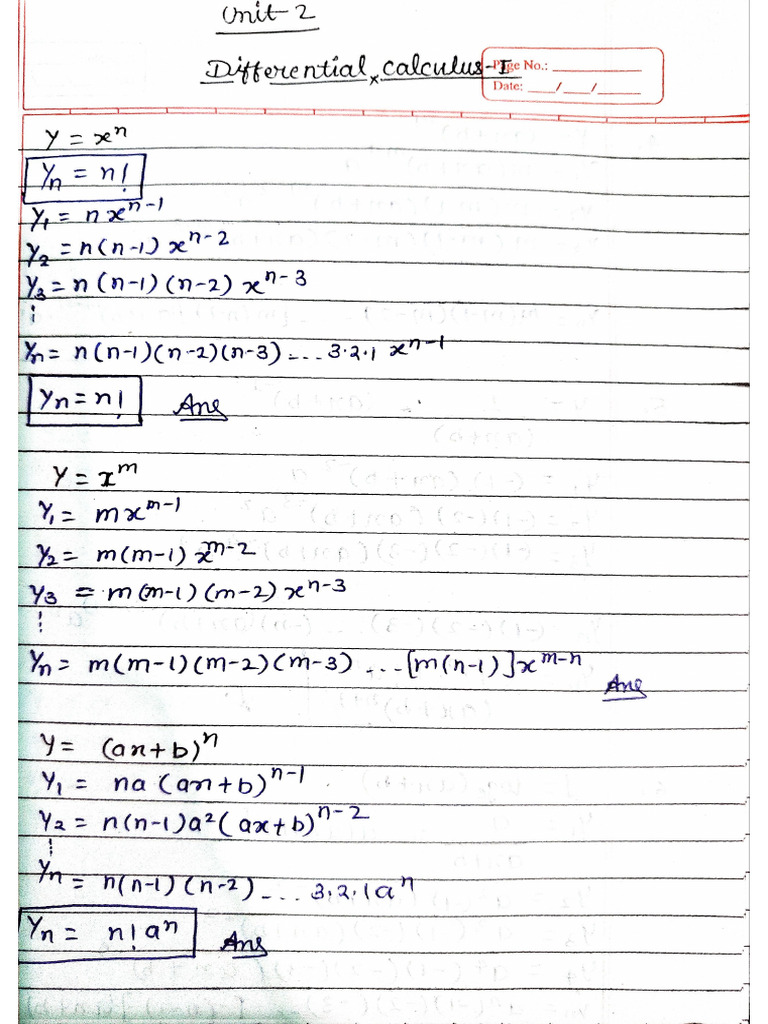 Unit-2
Differential calculus-I
Page No.:
Date: / /
y = xⁿ
yₙ = n!
y₁ = n xⁿ⁻¹
y₂ = n(n-1) xⁿ⁻²
y₃ = n (n-1) (n-2) xⁿ⁻³
⋮
yₙ = n(n-1)(n-2)(n-3)....3.2.1 xⁿ⁻¹
yₙ = n! Ans
y = xᵐ
y₁ = mxᵐ⁻¹
y₂ = m(m-1) xᵐ⁻²
y₃ = m(m-1)(m-2) xⁿ⁻³
⋮
yₙ = m(m-1)(m-2)(m-3) ...[m(n-1)]xᵐ⁻ⁿ Ans
y = (ax+b)ⁿ
y₁ = na (ax+b)ⁿ⁻¹
y₂ = n(n-1)a²(ax+b)ⁿ⁻²
⋮
yₙ = n(n-1)(n-2)....3.2.1aⁿ
yₙ = n! aⁿ Ans